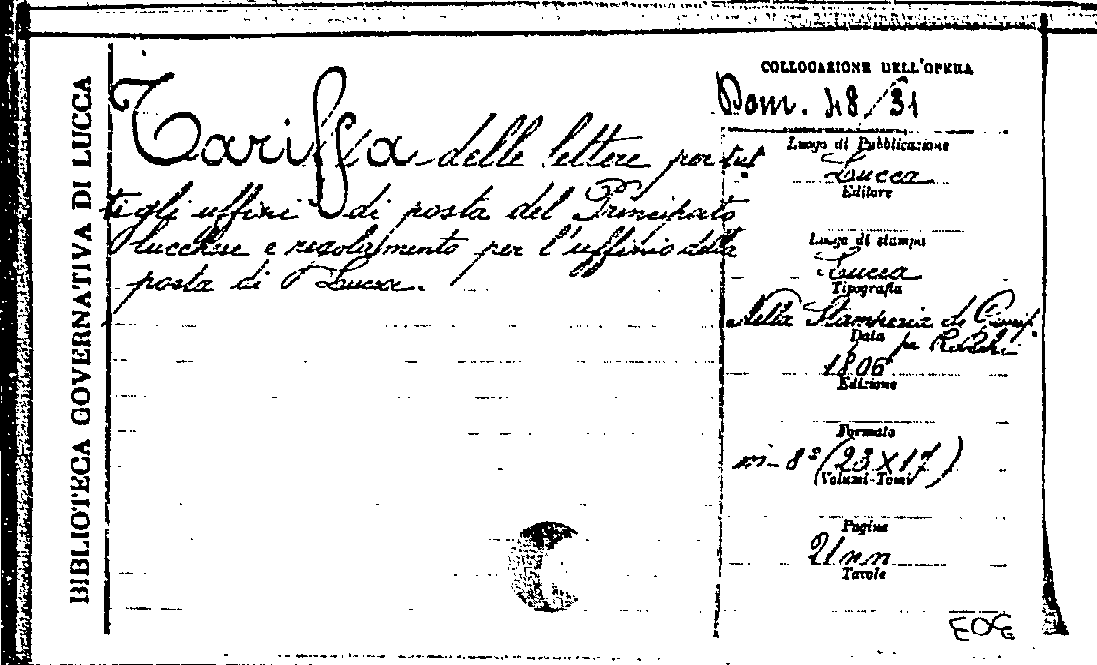 BIBLIOTECA GOVERNATIVA DI LUCCA
Tariffa delle lettere per tut
ti gli uffizi di posta del Principato
lucchese e regolamento per l'uffizio della
posta di Lucca.
COLLOCAZIONE DELL'OPERA
Dom. 48/31
Luogo di Pubblicazione
Lucca
Editore
Luogo di stampa
Lucca
Tipografia
Nella Stamperia di
Data
1806
Edizione
Formato
in-8º (23 X 17)
(Volumi-Tomi)
Pagine
21 nn
Tavole